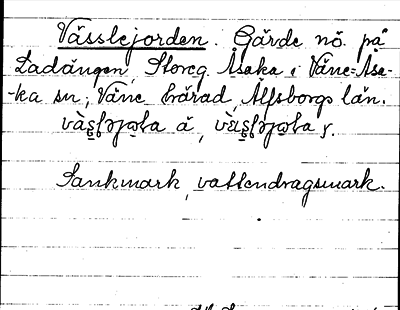 Vässlejorden. Gärde nö. på
Ladängen, Storeg. Åsaka i Väne-Åsa-
-ka sn; Väne härad, Älfsborgs län.
Sankmark, vattendragsmark.